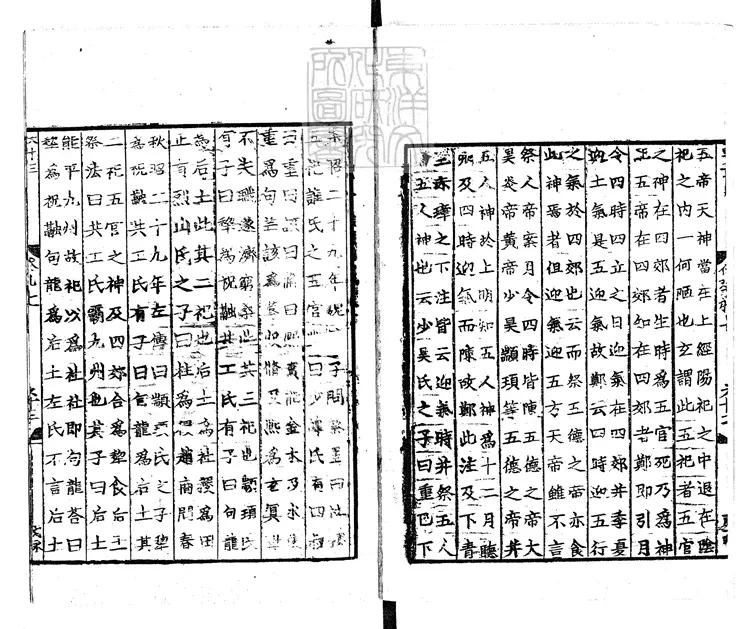 五帝天神當在上經陽祀之中退在陰
祀之内一何陋也玄謂此五祀者五官
之神在四郊者生時為五官死乃為神
五帝在四郊知在四郊者鄭即引月
令四時四立之日迎氣在四郊并季夏
迎土氣是五迎氣故鄭云四時迎五行
之氣於四郊也云而祭五德之帝亦食
此神焉者但迎氣迎五方天帝雖不言
祭人帝案月令四時皆陳五德之帝大
昊炎帝黃帝少昊顓頊等五德之帝并
五人神於上明知五人神為十二月聽
朔及四時迎氣而陳故鄭此注及下青
圭赤璋之下注皆云迎氣時并祭五人
五人神也云少昊氏之子曰重已下
案昭二十九年
五祀誰氏之五官 曰少皥氏有四叔
曰重曰該曰脩曰熙實能金木及水使
重為句芒該為蓐收脩及熙為玄冥世
不失職遂濟窮桑此其三祀也顓頊氏
有子曰犂為祝融共工氏有子曰句龍
為后土此其二祀也后土為社稷為田
正有烈山氏之子曰柱為稷趙商問春
秋昭二十九年左傳曰顓頊氏之子犂
為祝融共工氏有子曰句龍為后土其
二祀五官之神及四郊合為犂食后土
祭法曰共工氏霸九州也其子曰后土
能平九州故祀以為社社即句龍答曰
犂為祝融句龍為后土左氏不言后土
六十三